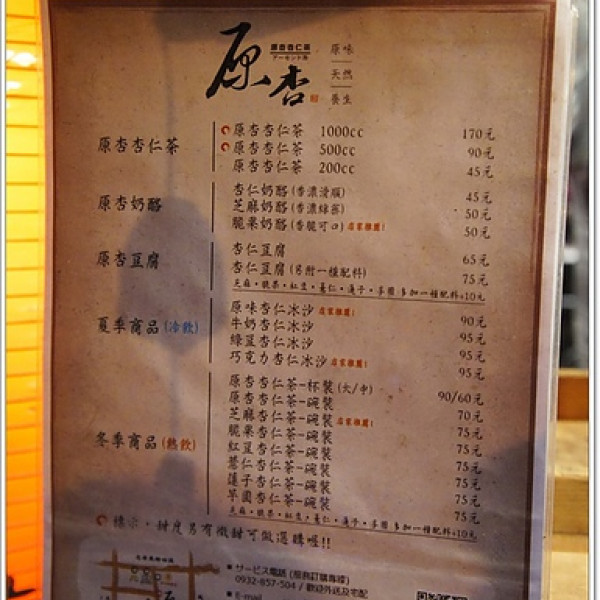 原杏
原杏杏仁茶
アーモンド茶
原味
天然
養生
原杏杏仁茶
原杏杏仁茶 1000cc 170元
原杏杏仁茶 500cc 90元
原杏杏仁茶 200cc 45元
原杏奶酪
杏仁奶酪(香濃滑順) 45元
芝麻奶酪(香濃綿密) 50元
脆果奶酪(香脆可口) 店家推薦! 50元
原杏豆腐
杏仁豆腐 65元
杏仁豆腐(另附一種配料) 75元
芝麻、脆果、紅豆、薏仁、蓮子、芋圓 多加一種配料+10元
夏季商品(冷飲)
原味杏仁冰沙 店家推薦! 90元
牛奶杏仁冰沙 95元
綠豆杏仁冰沙 95元
巧克力杏仁冰沙 店家推薦! 95元
冬季商品(熱飲)
原杏杏仁茶-杯裝(大/中) 90/60元
原杏杏仁茶-碗裝 70元
芝麻杏仁茶-碗裝 店家推薦! 75元
脆果杏仁茶-碗裝 75元
紅豆杏仁茶-碗裝 75元
薏仁杏仁茶-碗裝 75元
蓮子杏仁茶-碗裝 75元
芋圓杏仁茶-碗裝 75元
芝麻、脆果、紅豆、薏仁、蓮子、芋圓 多加一種配料+10元
標示、甜度另有微甜可做選購喔!!
■ サービス電話 (服務訂購專線)
0932-857-504 / 歡迎外送及宅配
■ E-mail